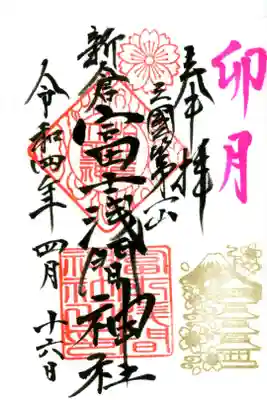 卯月
奉拝
三國第一山
新倉富士浅間神社
令和四年 四月 十六日